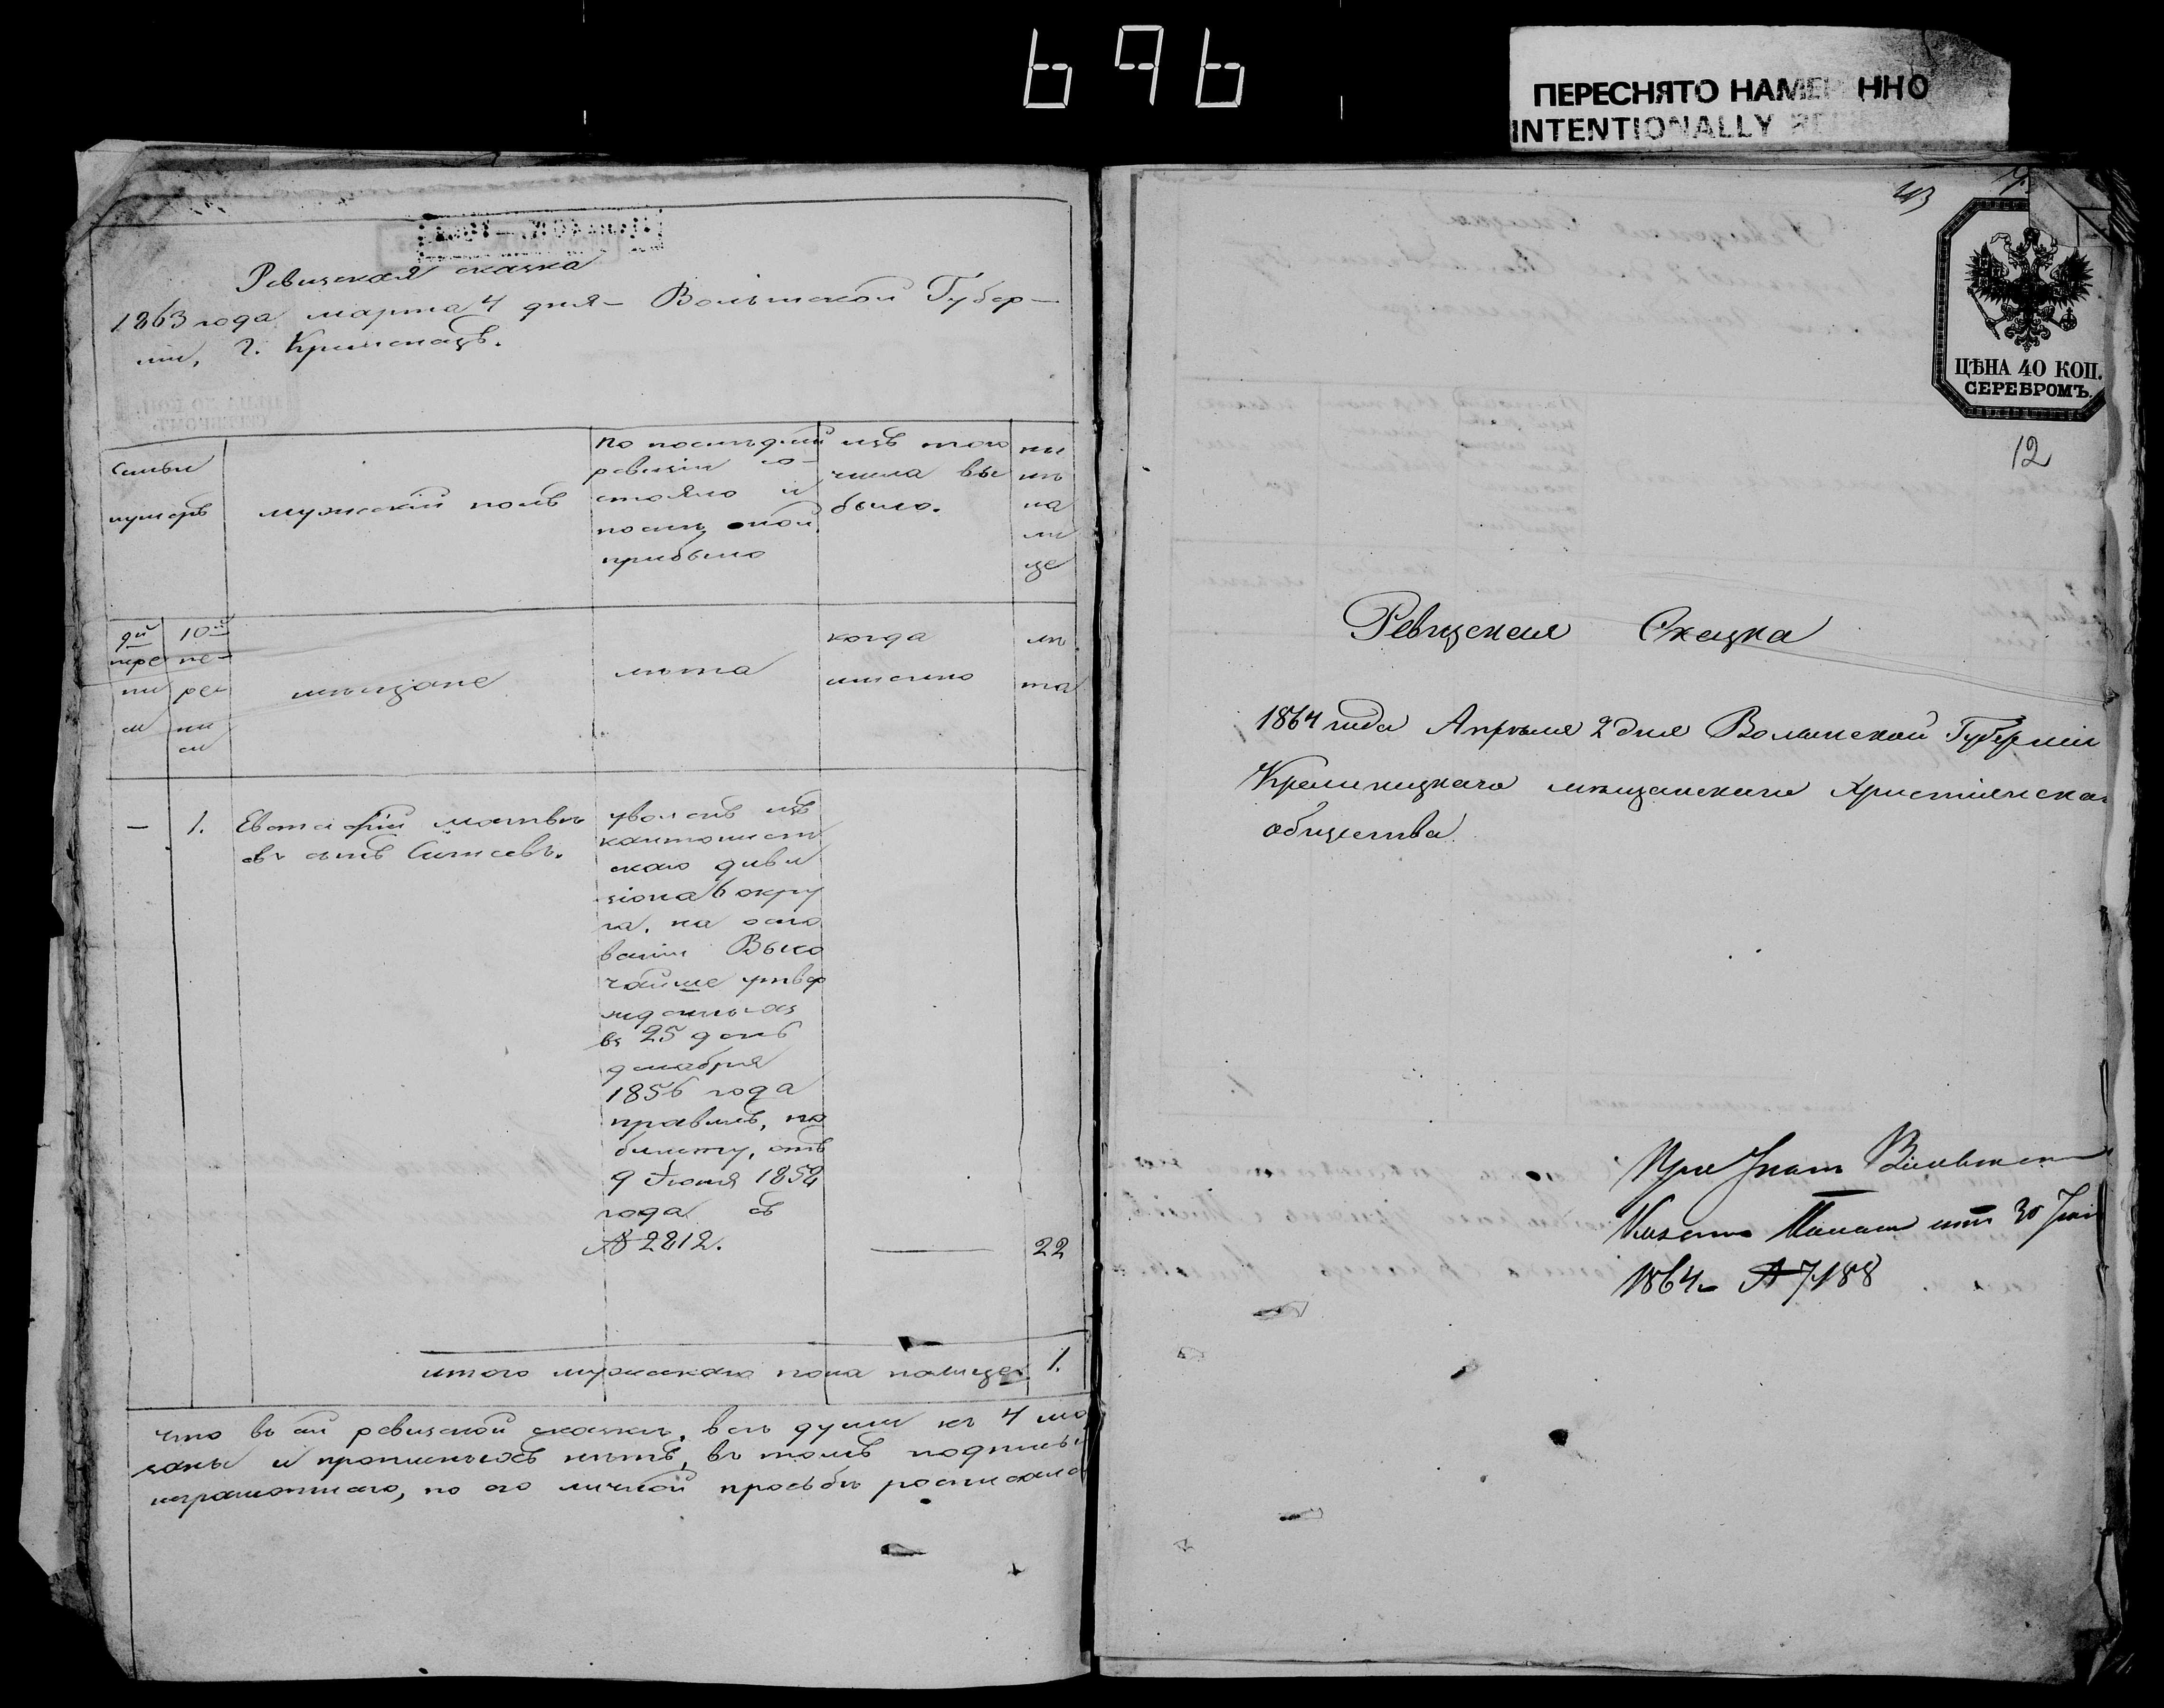 696
ПЕРЕСНЯТО НАМЕРЕННО
INTENTIONALLY RE
Ревизская сказка
1863 года марта 4 дня – Волынской Губер–
нии, г. Кременецъ.
Семьи
нумеръ
мужескій полъ
По послѣдней
ревизіи со–
стояло и
послѣ оной
прибыло
изъ того
числа вы
было.
ны
нѣ
на
ли
це
9й
пере
пи
си
10й
пе–
ре
пи
си
мѣщане
лѣта
когда
именно
лѣ
та
–
1.
Евстафій Матвѣе
въ сынъ
уволенъ изъ
кантонист
скаго диви
зіона 6 окру
га, на осно
ваніи Высо
чайше утвер
жденныхъ
въ 25 день
декабря
1856 года
правилъ, по
билету, отъ
9 Іюня 1858
года съ
№ 2812.
22
итого мужескаго пола налице
1.
что въ сей ревизской сказкѣ, всѣ души къ 4 ма
заны и прописныхъ нѣтъ, въ томъ подписы
неграмотнаго, по его личной прозьбѣ росписался
43
ЦѢНА 40 КОП.
СЕРЕБРОМЪ.
12
Ревизская Сказка
1864 года Апрѣля 2 дня Волынской Губерніи
Кременецкаго мѣщанскаго Христіянска
общества
При
Казен. Палаты отъ 30
1864 № 7188